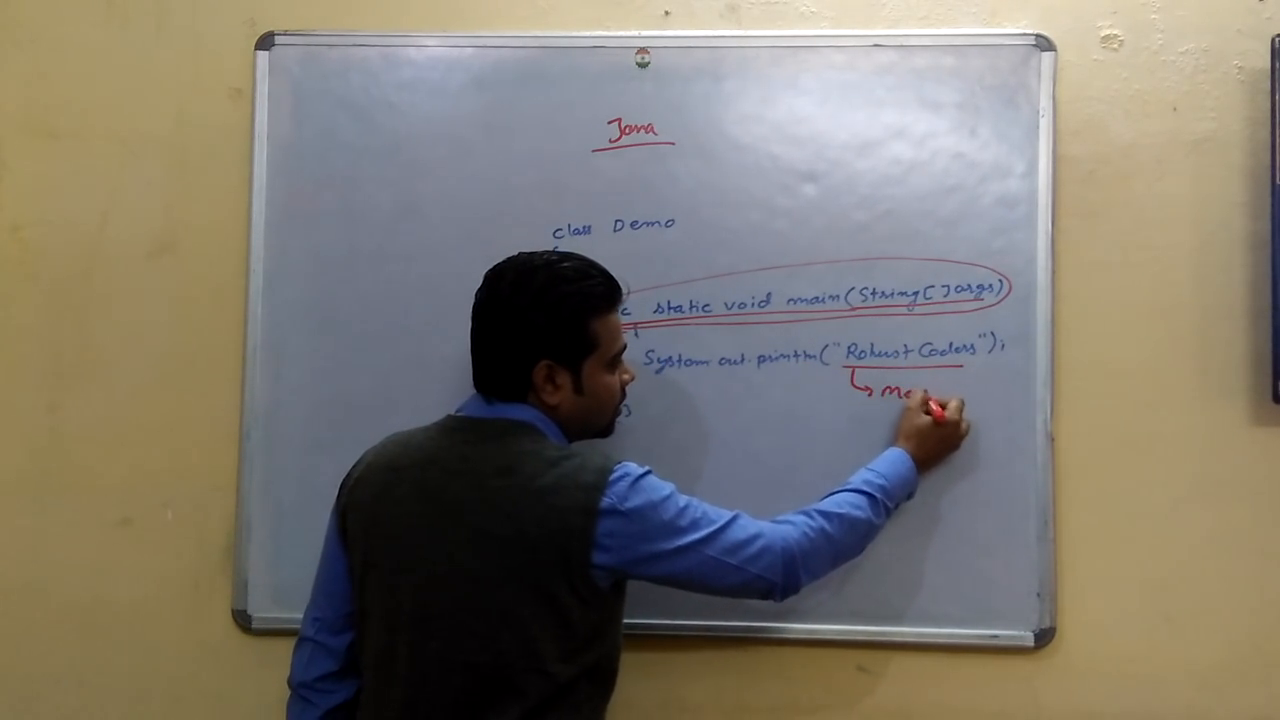 Java
class Demo
{
c static void main(String[]args)
{
System.out.println("Robust Coders");
}